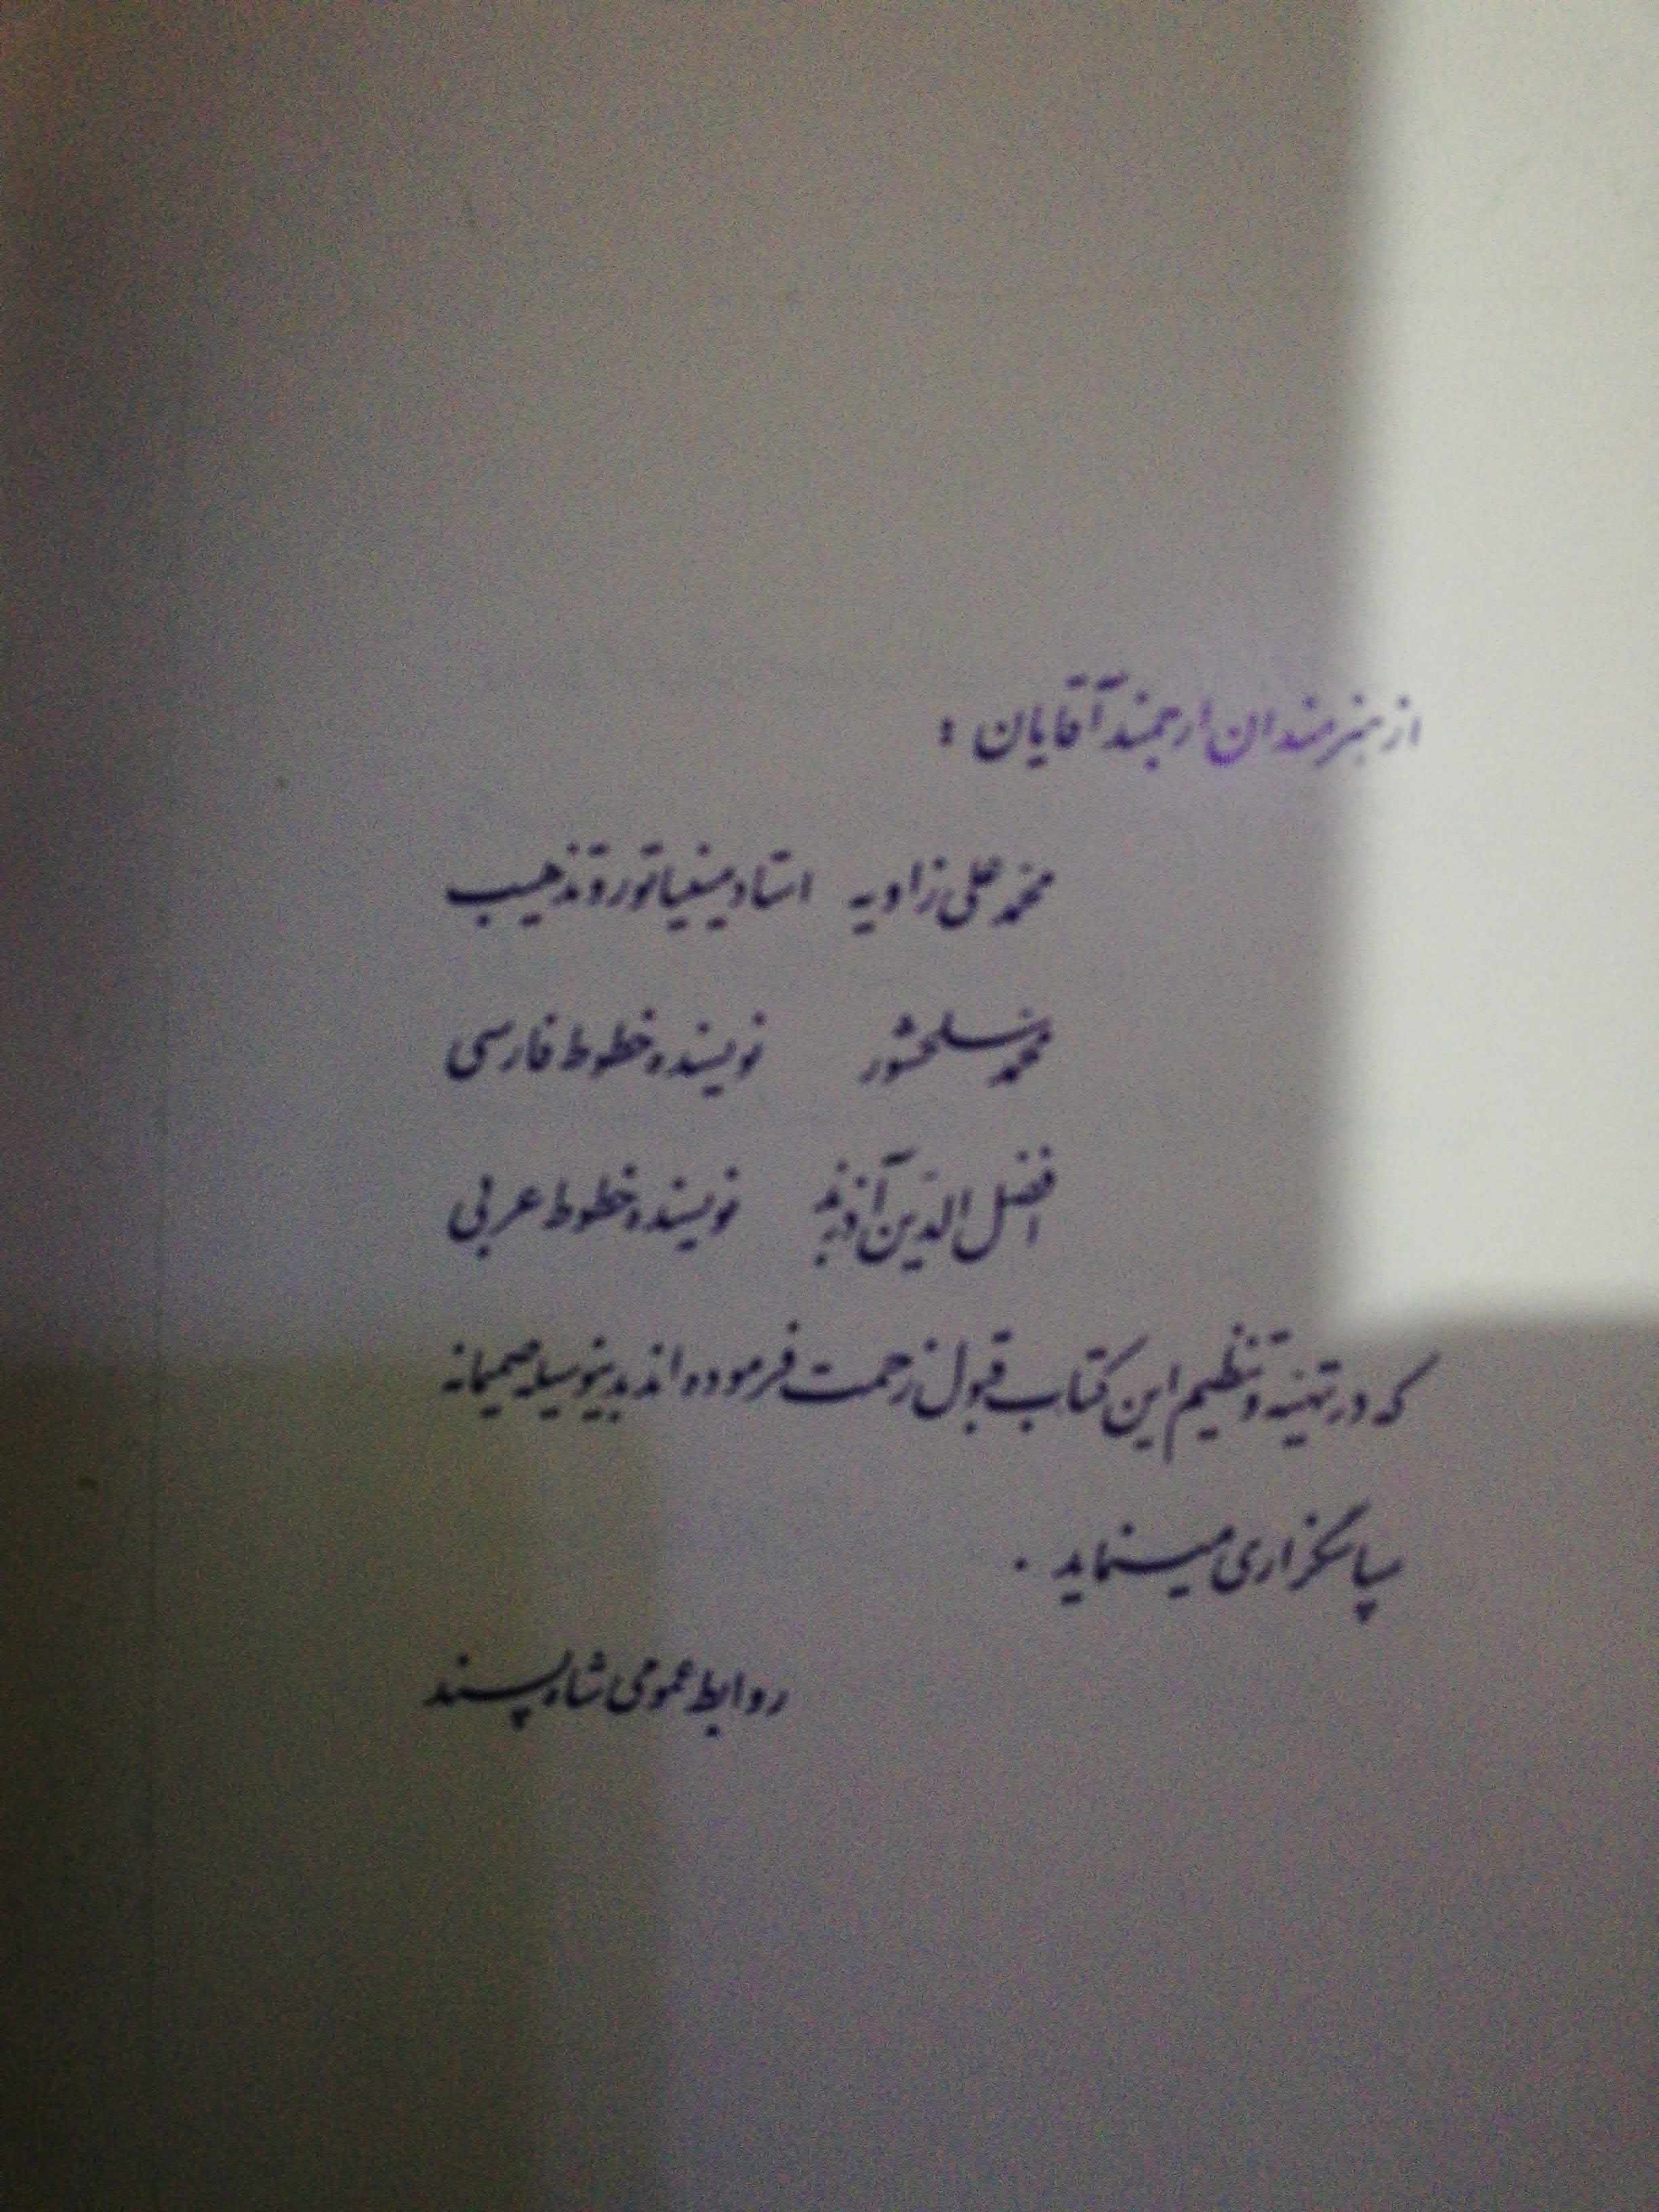 از هنرمندان ارجمند آقایان :
محمد علی زاویه استاد مینیاتور و تذهیب
محمد سلحشور نویسنده خطوط فارسی
افضل الدین آذربد نویسنده خطوط عربی
که در تهیه و تنظیم این کتاب قبول زحمت فرموده اند بدینوسیله صمیمانه
سپاسگزاری مینماید .
روابط عمومی شاه پسند